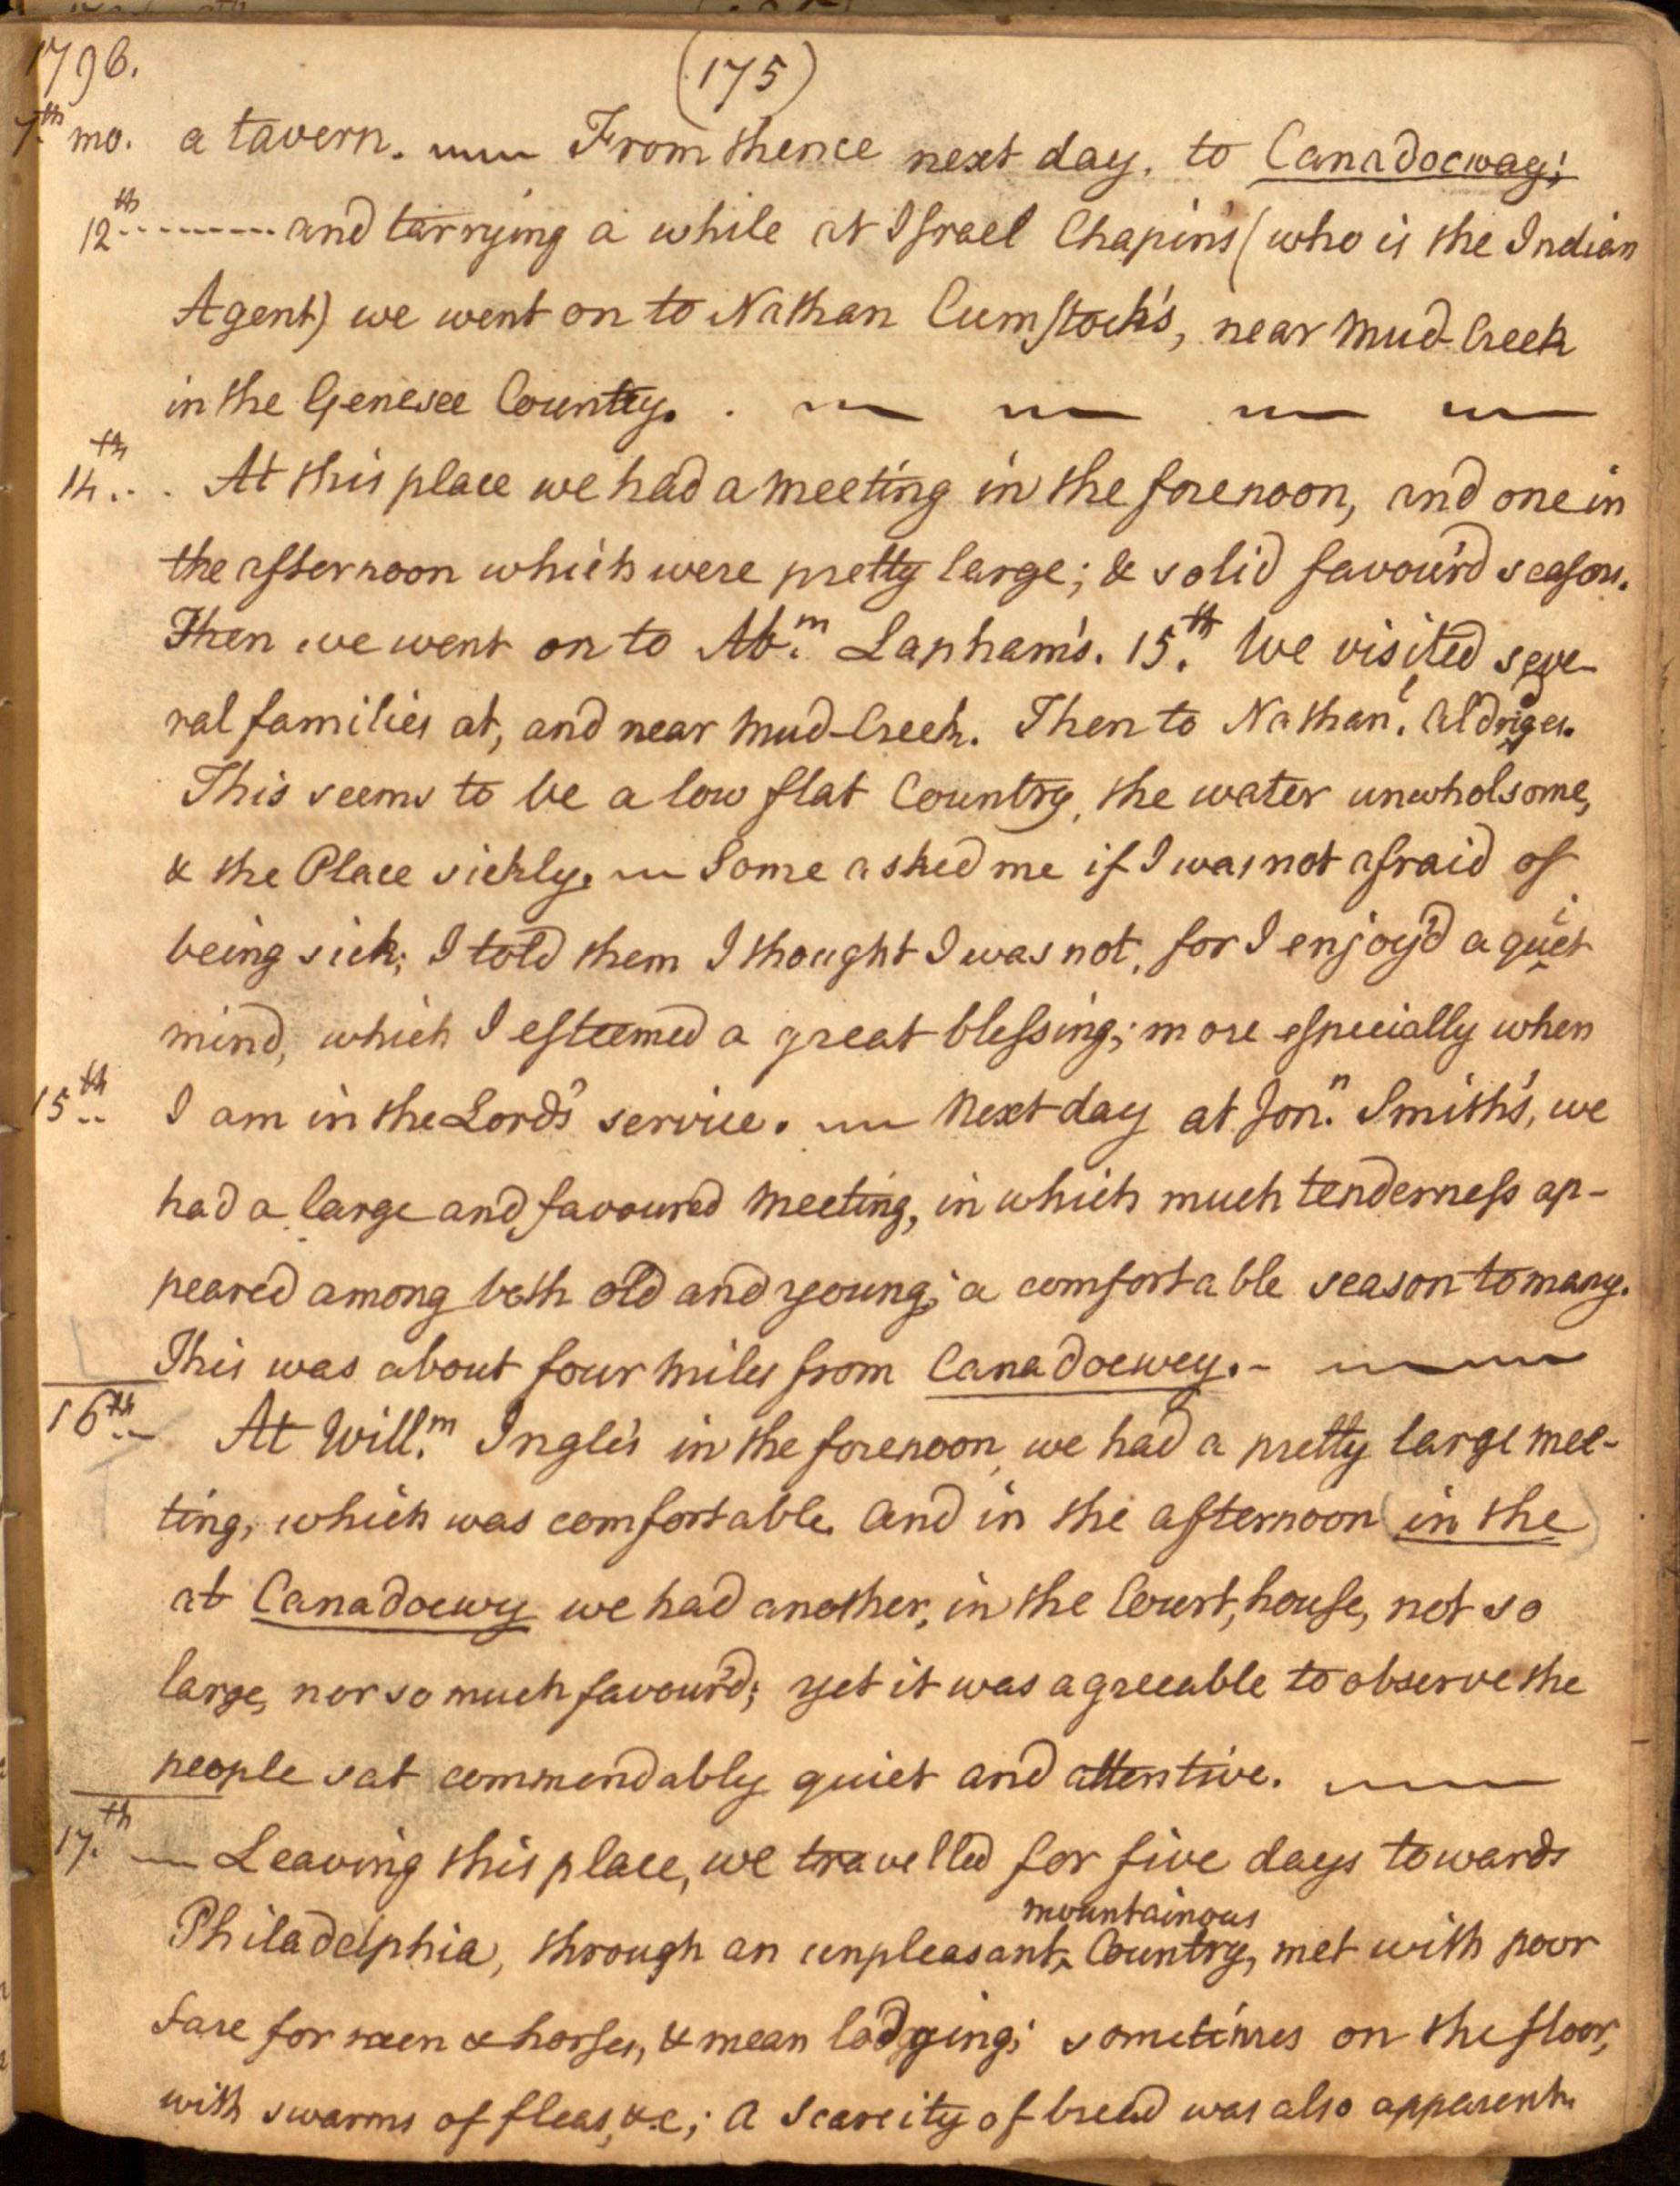 1796.
(175)
7th mo. a tavern. — From thence next day, to Canadocway;
12th -------- and tarrying a while at Israel Chapin's (who is the Indian
Agent) we went on to Nathan Cumstock's, near Mud-Creek
in the Genesee Country. . — — — —
14th .. At this place we had a meeting in the forenoon, and one in
the afternoon which were pretty large; & solid favour'd seasons.
Then we went on to Abm. Lapham's. 15th. We visited seve-
ral families at, and near Mud-Creek. Then to Nathanl. Aldriges.
This seems to be a low flat Country, the water unwholsome,
& the Place sickly. — Some asked me if I was not afraid of
being sick; I told them I thought I was not, for I enjoy'd a quiet
mind, which I esteemed a great blessing; more especially when
15th.. I am in the Lord's service. — Next day at Jonn. Smith's, we
had a large and favoured Meeting, in which much tenderness ap-
peared among both old and young; a comfortable season to many.
This was about four miles from Canadocwey. - ——
16th.. At Willm. Ingle's in the forenoon, we had a pretty large mee-
ting, which was comfortable. And in the afternoon (in the)
at Canadocwy we had another, in the Court, house, not so
large, nor so much favour'd; yet it was agreeable to observe the
people sat commendably quiet and attentive. ——
17.th — Leaving this place, we travelled for five days towards
mountainous
Philadelphia, through an unpleasant, ^ Country, met with poor
fare for men & horses, & mean lodging; sometimes on the floor,
with swarms of fleas, &c; A scarcity of bread was also apparent.